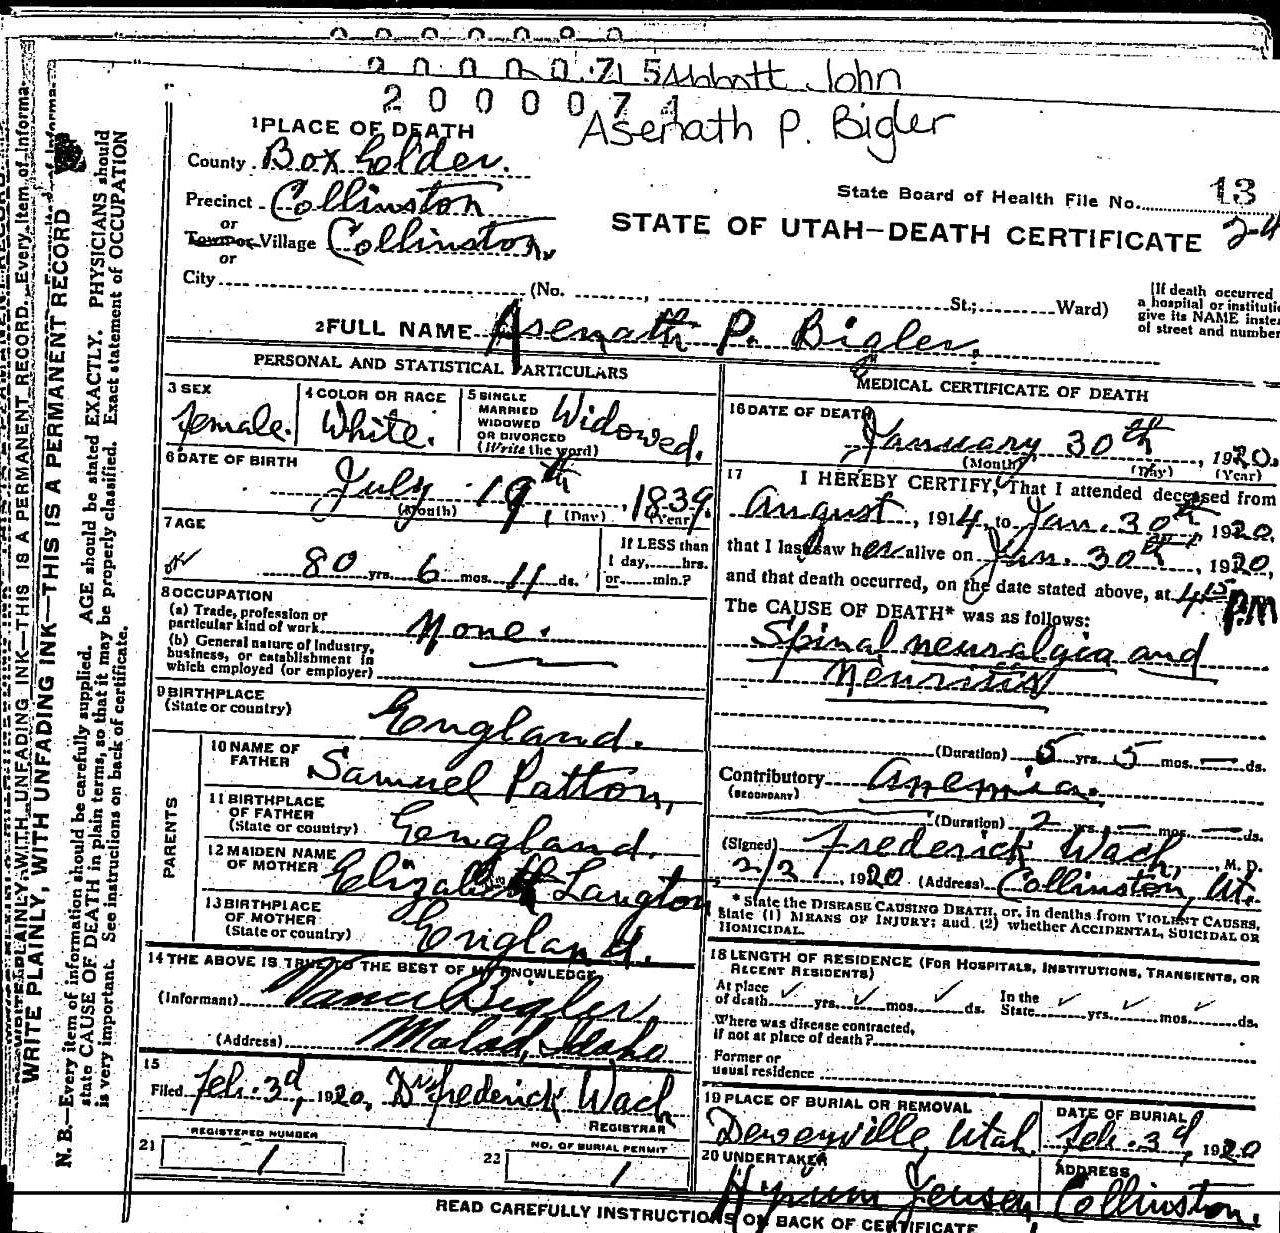 2 0 0 0 0 7 1 5 Abbott John
2 0 0 0 0 7 1 Asenath P. Bigler
1 PLACE OF DEATH
County Box Elder.
Precinct Collinston
or
Town or Village Collinston.
or
City (No. , St.; Ward)
State Board of Health File No. 13
STATE OF UTAH—DEATH CERTIFICATE 2-4
[If death occurred
a hospital or instituti
give its NAME inste
of street and number
2 FULL NAME Asenath P. Bigler.
PERSONAL AND STATISTICAL PARTICULARS
3 SEX
female.
4 COLOR OR RACE
White.
5 SINGLE
MARRIED
WIDOWED
OR DIVORCED
(Write the word)
Widowed.
6 DATE OF BIRTH
July 19th, 1839.
(Month) (Day) (Year)
7 AGE
80 yrs. 6 mos. 11 ds.
If LESS than
1 day, hrs.
or min.?
8 OCCUPATION
(a) Trade, profession or
particular kind of work None.
(b) General nature of industry,
business, or establishment in
which employed (or employer)
9 BIRTHPLACE
(State or country)
England.
PARENTS
10 NAME OF
FATHER
Samuel Patton,
11 BIRTHPLACE
OF FATHER
(State or country)
England.
12 MAIDEN NAME
OF MOTHER
Elizabeth Langton
13 BIRTHPLACE
OF MOTHER
(State or country)
England.
14 THE ABOVE IS TRUE TO THE BEST OF MY KNOWLEDGE
(Informant) Bigler
(Address) Malad, Idaho
15
Filed Feb. 3d, 1920, Dr Frederick Wach
REGISTRAR
21 REGISTERED NUMBER
1
22 NO. OF BURIAL PERMIT
1
MEDICAL CERTIFICATE OF DEATH
16 DATE OF DEATH
January 30th, 1920.
(Month) (Day) (Year)
17 I HEREBY CERTIFY, That I attended deceased from
August, 1914, to Jan. 30th 1920.
that I last saw her alive on Jan. 30th, 1920,
and that death occurred, on the date stated above, at 4 15 P.M
The CAUSE OF DEATH* was as follows:
Spinal neuralgia and
Neuritis
(Duration) 5 yrs. 5 mos. — ds.
Contributory Anemia.
(SECONDARY)
(Duration) 2 yrs. — mos. — ds.
(Signed) Frederick Wach, M. D.
2/2, 1920 (Address) Collinston, Ut.
* State the DISEASE CAUSING DEATH, or, in deaths from VIOLENT CAUSES,
state (1) MEANS OF INJURY; and (2) whether ACCIDENTAL, SUICIDAL OR
HOMICIDAL.
18 LENGTH OF RESIDENCE (FOR HOSPITALS, INSTITUTIONS, TRANSIENTS, OR
RECENT RESIDENTS)
At place
of death yrs. mos. ds.
In the
State yrs. mos. ds.
Where was disease contracted,
if not at place of death?
Former or
usual residence
19 PLACE OF BURIAL OR REMOVAL
Deweyville, Utah.
DATE OF BURIAL
Feb. 3d, 1920
20 UNDERTAKER
Hyrum Jensen,
ADDRESS
Collinston.
READ CAREFULLY INSTRUCTIONS ON BACK OF CERTIFICATE
WRITE PLAINLY, WITH UNFADING INK—THIS IS A PERMANENT RECORD
N. B.—Every item of information should be carefully supplied. AGE should be stated EXACTLY. PHYSICIANS should
state CAUSE OF DEATH in plain terms, so that it may be properly classified. Exact statement of OCCUPATION
is very important. See instructions on back of certificate.